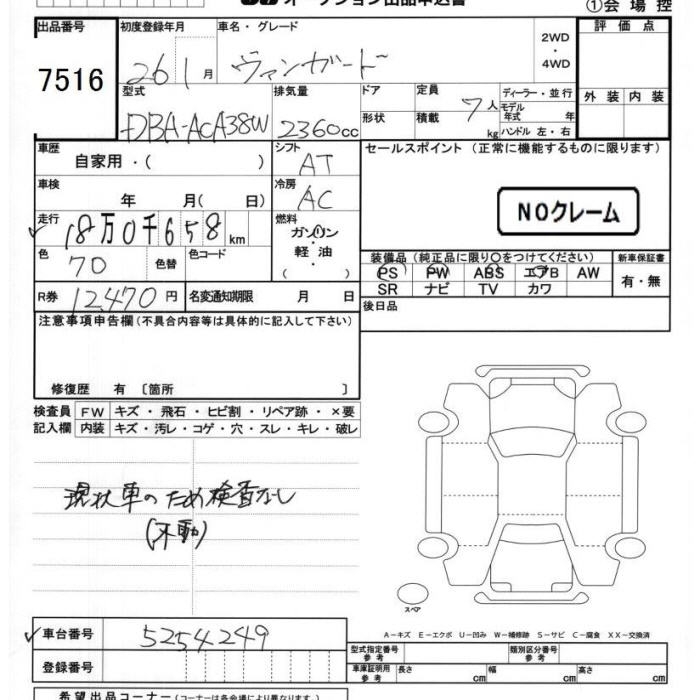 オークション出品申込書
①会場控
出品番号 7516
初度登録年月 26 1月
車名・グレード ヴァンガード
2WD ・ 4WD
評価点
外装 内装
型式 DBA-ACA38W
排気量 2360cc
ドア
形状
定員 7人
積載 kg
ディーラー・並行
モデル年式 年
ハンドル 左・右
車歴 自家用・( )
シフト AT
セールスポイント (正常に機能するものに限ります)
車検 年 月( 日)
冷房 AC
NOクレーム
走行 18万0千658km
燃料 ガソリン・軽油・( )
色 70 色替 色コード
装備品 (純正品に限り○をつけてください) 新車保証書
PS PW ABS エアB AW 有・無
SR ナビ TV カワ
R券 12,470円 名変通知期限 月 日
後日品
注意事項申告欄 (不具合内容等は具体的に記入して下さい)
修復歴 有 〔箇所 〕
検査員 FW キズ・飛石・ヒビ割・リペア跡・×要
記入欄 内装 キズ・汚レ・コゲ・穴・スレ・キレ・破レ
現状車のため検査なし
(不動)
スペア
A-キズ E-エクボ U-凹み W-補修跡 S-サビ C-腐食 XX-交換済
車台番号 5254249
型式指定番号 参考 類別区分番号 参考
登録番号
車庫証明用 参考 長さ cm 幅 cm 高さ cm
希望出品コーナー (コーナーは各会場により異なります。)